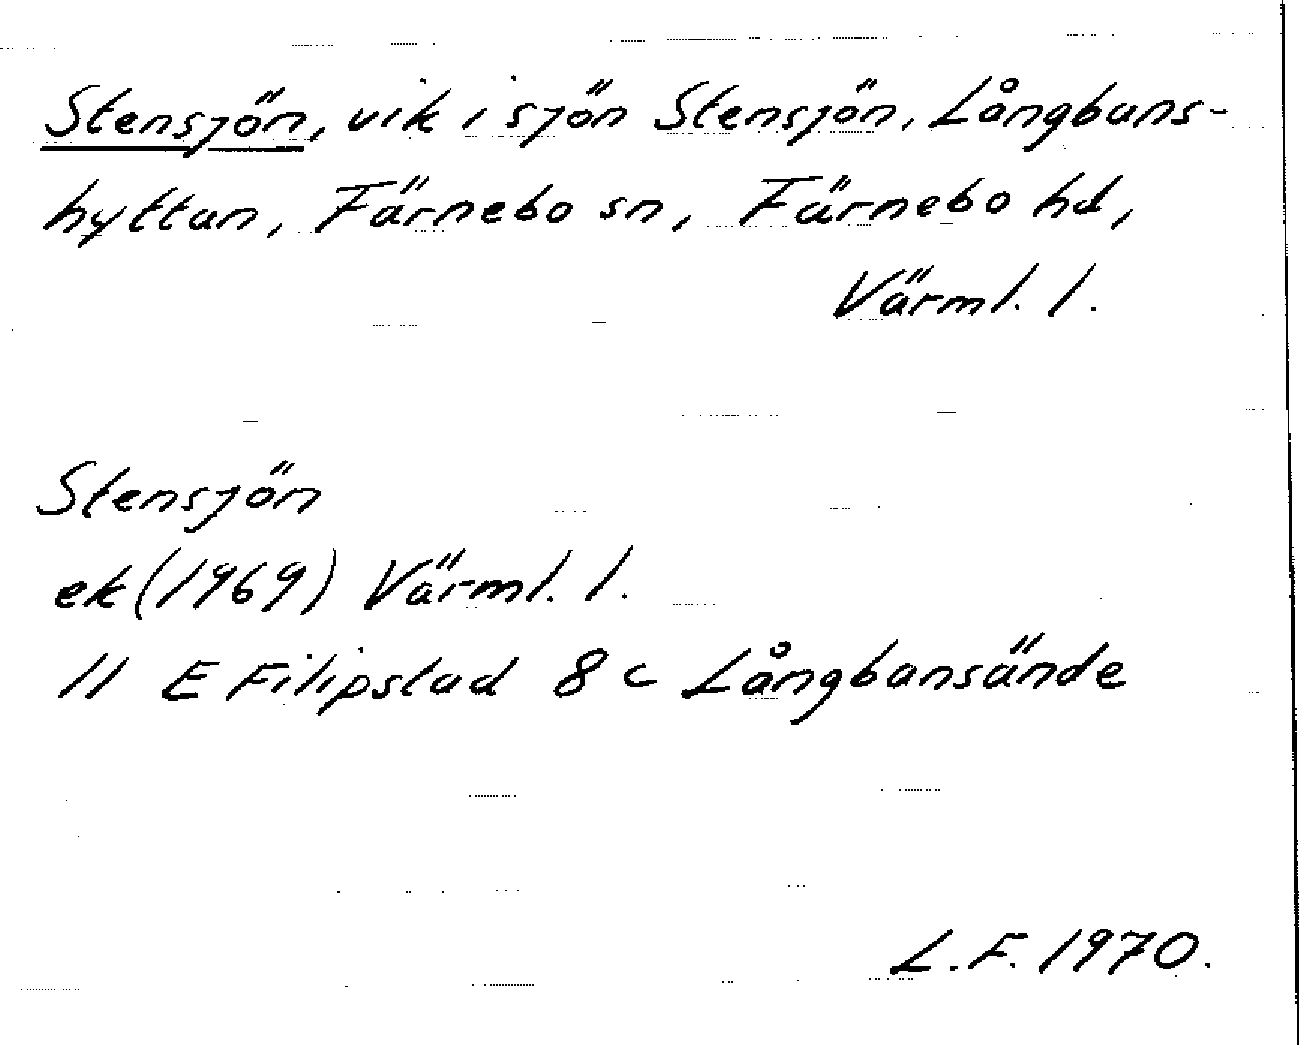 Stensjön, vik i sjön Stensjön, Långbans-
hyttan, Färnebo sn, Färnebo hd,
Värml. l.
Stensjön
ek (1969) Värml. l.
11 E Filipstad 8 c Långbansände
L.F. 1970.